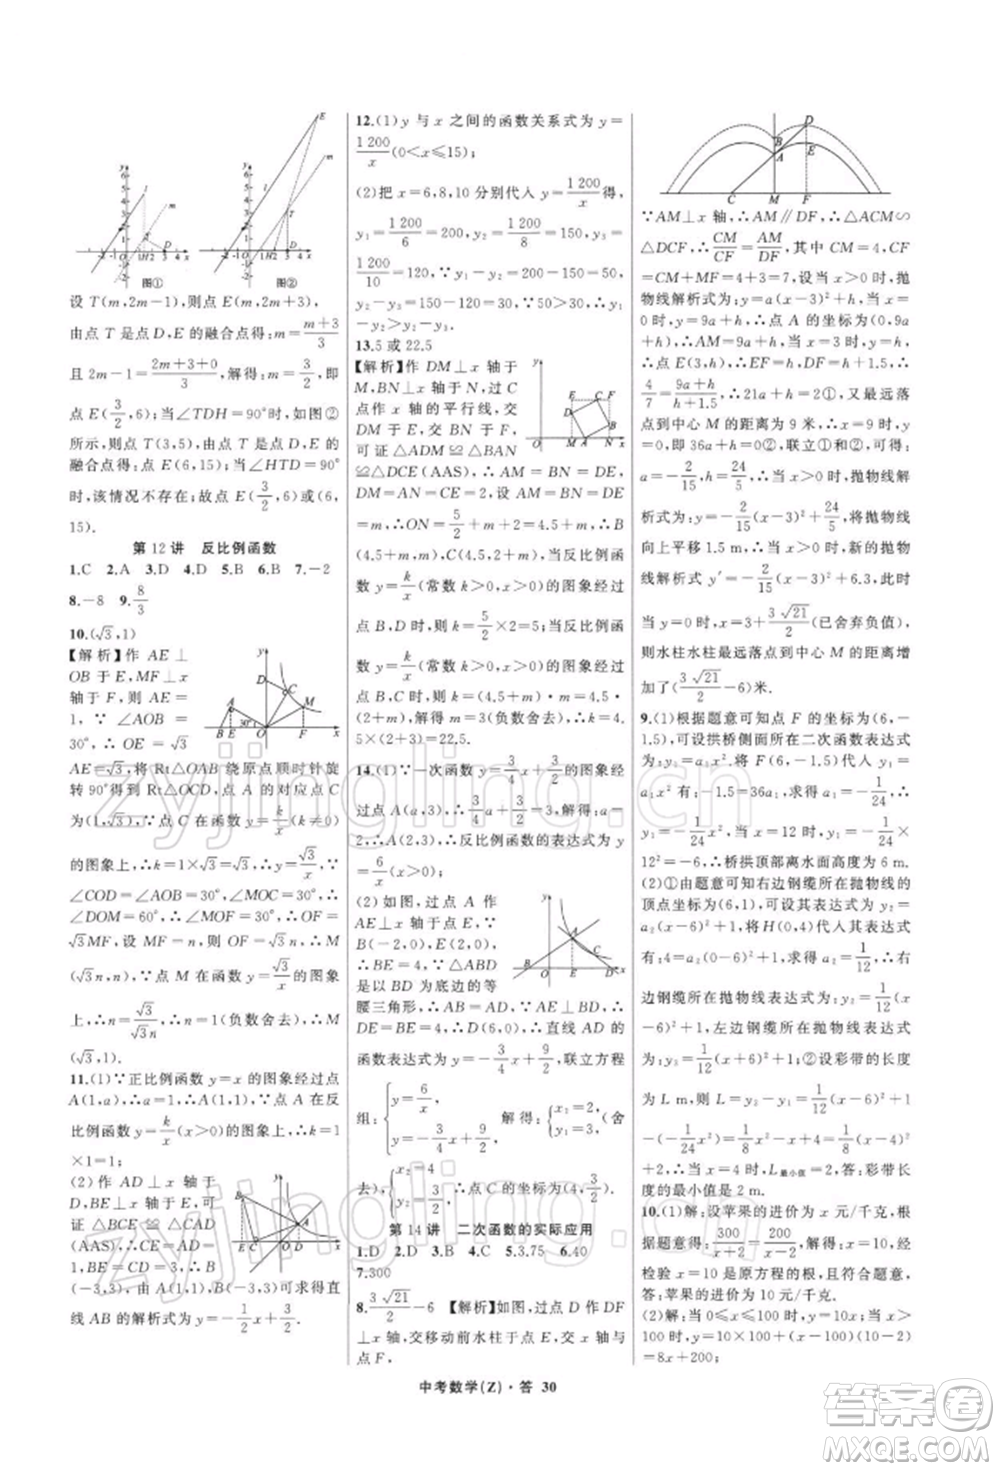 设 T(m,2m−1),则点 E(m,2m+3),
由点 T 是点 D,E 的融合点得:m=\frac{m+3}{3}
且 2m−1=\frac{2m+3+0}{3},解得:m=\frac{3}{2},即
点 E(\frac{3}{2},6);当∠TDH=90°时,如图②
所示,则点 T(3,5),由点 T 是点 D,E 的
融合点得:点 E(6,15);当∠HTD=90°
时,该情况不存在;故点 E(\frac{3}{2},6)或(6,
15).
第 12 讲 反比例函数
1.C 2.A 3.D 4.D 5.B 6.B 7.−2
8.−8 9.\frac{8}{3}
10.(√3,1)
【解析】作 AE⊥
OB 于 E,MF⊥x
轴于 F,则 AE=
1,∵∠AOB=
30°,∴OE=√3
AE=√3,将 Rt△OAB 绕原点顺时针旋
转 90°得到 Rt△OCD,点 A 的对应点 C
为(1,√3),∵点 C 在函数 y=\frac{k}{x}(k≠0)
的图象上,∴k=1×√3=√3,∴y=\frac{√3}{x},∵
∠COD=∠AOB=30°,∠MOC=30°,∴
∠DOM=60°,∴∠MOF=30°,∴OF=
√3MF,设 MF=n,则 OF=√3n,∴M
(√3n,n),∵点 M 在函数 y=\frac{√3}{x}的图象
上,∴n=\frac{√3}{√3n},∴n=1(负数舍去),∴M
(√3,1).
11.(1)∵正比例函数 y=x 的图象经过点
A(1,a),∴a=1,∴A(1,1),∵点 A 在反
比例函数 y=\frac{k}{x}(x>0)的图象上,∴k=1
×1=1;
(2)作 AD⊥x 轴于
D,BE⊥x 轴于 E,可
证△BCE≌△CAD
(AAS),∴CE=AD=
1,BE=CD=3,∴B
(−3,3),由点 A(1,1)和 B(−3,3)可求得直
线 AB 的解析式为 y=−\frac{1}{2}x+\frac{3}{2}.
12.(1)y 与 x 之间的函数关系式为 y=
\frac{1200}{x}(0<x≤15);
(2)把 x=6,8,10 分别代入 y=\frac{1200}{x}得,
y₁=\frac{1200}{6}=200,y₂=\frac{1200}{8}=150,y₃=
\frac{1200}{10}=120,∵y₁−y₂=200−150=50,
y₂−y₃=150−120=30,∵50>30,∴y₁
−y₂>y₂−y₃.
13.5 或 22.5
【解析】作 DM⊥x 轴于
M,BN⊥x 轴于 N,过 C
点作 x 轴的平行线,交
DM 于 E,交 BN 于 F,
可证△ADM≌△BAN
≌△DCE(AAS),∴AM=BN=DE,
DM=AN=CE=2,设 AM=BN=DE
=m,∴ON=\frac{5}{2}+m+2=4.5+m,∴B
(4.5+m,m),C(4.5,2+m),当反比例函
数 y=\frac{k}{x}(常数 k>0,x>0)的图象经过
点 B,D 时,则 k=\frac{5}{2}×2=5;当反比例函
数 y=\frac{k}{x}(常数 k>0,x>0)的图象经过
点 B,C 时,则 k=(4.5+m)·m=4.5·
(2+m),解得 m=3(负数舍去),∴k=4.
5×(2+3)=22.5.
14.(1)∵一次函数 y=\frac{3}{4}x+\frac{3}{2}的图象经
过点 A(a,3),∴\frac{3}{4}a+\frac{3}{2}=3,解得:a=
2,∴A(2,3),∴反比例函数的表达式为 y
=\frac{6}{x}(x>0);
(2)如图,过点 A 作
AE⊥x 轴于点 E,∵
B(−2,0),E(2,0),
∴BE=4,∵△ABD
是以 BD 为底边的等
腰三角形,∴AB=AD,∵AE⊥BD,∴
DE=BE=4,∴D(6,0),∴直线 AD 的
函数表达式为 y=−\frac{3}{4}x+\frac{9}{2},联立方程
组:{y=\frac{6}{x} y=−\frac{3}{4}x+\frac{9}{2} 解得:{x₁=2, y₁=3, (舍
去),{x₂=4 y₂=\frac{3}{2},∴点 C 的坐标为(4,\frac{3}{2}).
第 14 讲 二次函数的实际应用
1.D 2.D 3.B 4.C 5.3.75 6.40
7.300
8.\frac{3√21}{2}−6 【解析】如图,过点 D 作 DF
⊥x 轴,交移动前水柱于点 E,交 x 轴与
点 F,
∵AM⊥x 轴,∴AM∥DF,∴△ACM∽
△DCF,∴\frac{CM}{CF}=\frac{AM}{DF},其中 CM=4,CF
=CM+MF=4+3=7,设当 x>0 时,抛
物线解析式为:y=a(x−3)²+h(a≠0),
当 x=0 时,y=9a+h;∴点 A 的坐标为(0,9a
+h),∴AM=9a+h;当 x=3 时,y=h,
∴点 E(3,h),∴EF=h,DF=h+1.5,∴
\frac{4}{7}=\frac{9a+h}{h+1.5},∴21a+h=2①,又最远落
点到中心 M 的距离为 9 米,∴x=9 时,y
=0,即:36a+h=0②,联立①和②可得:
a=−\frac{2}{15},h=\frac{24}{5},∴移动前抛物线解
析式为:y=−\frac{2}{15}(x−3)²+\frac{24}{5},抛物线
向上平移 1.5 m,则 DF=6.3,移动后抛物
线解析式 y′=−\frac{2}{15}(x−3)²+6.3,此时
当 y=0 时,x=3+\frac{3√21}{2}(已舍弃负值),
则水柱水柱最远落点到中心 M 的距离增
加了(\frac{3√21}{2}−6)米.
9.(1)根据题意可知点 F 的坐标为(6,−
1.5),可设拱桥侧面所在二次函数表达式
为:y₁=a₁x²,将 F(6,−1.5)代入 y₁=
a₁x²有:−1.5=36a₁,求得 a₁=−\frac{1}{24},∴
y₁=−\frac{1}{24}x²,当 x=12 时,y₁=−\frac{1}{24}×
12²=−6,∴桥拱顶部离水面高度为 6 m.
(2)①由题意可知右边钢缆所在抛物线的
顶点坐标为(6,1),可设其表达式为 y₂=
a₂(x−6)²+1,将 H(0,4)代入其表达式
有:4=a₂(0−6)²+1,求得 a₂=\frac{1}{12},∴右
边钢缆所在抛物线表达式为:y₂=\frac{1}{12}(x−
6)²+1,左边钢缆所在抛物线表达式为:
y₃=\frac{1}{12}(x+6)²+1;②设彩带的长度
为 L m,则 L=y₂−y₁=\frac{1}{12}(x−6)²+1
−(−\frac{1}{24}x²)=\frac{1}{8}x²−x+4=\frac{1}{8}(x−4)²
+2,∴当 x=4 时,L最小值=2,答:彩带长度
的最小值是 2 m.
10.(1)解:设苹果的进价为 x 元/千克,
根据题意得:\frac{300}{x+2}=\frac{200}{x−2},解得:x=10,经
检验 x=10 是原方程的根,且符合题意,
答:苹果的进价为 10 元/千克.
(2)解:当 0≤x≤100 时,y=10x;当 x>
100 时,y=10×100+(x−100)(10−2)
=8x+200;
中考数学(Z)·答 30
zyjingling.cn
zyjingling.cn
答案圈
MXQE.COM